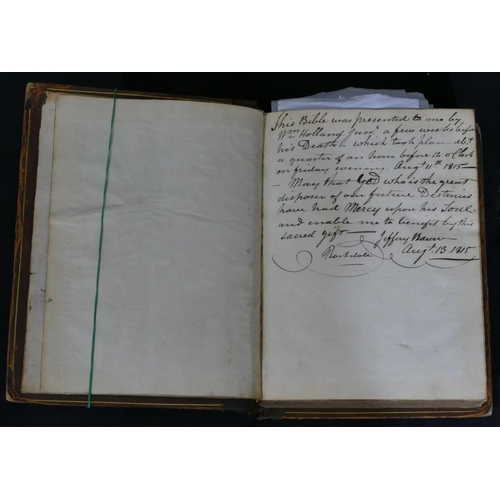 This Bible was presented to me by
Wm Holland Junr a few weeks before
his Death which took place abt
a quarter of an hour before 12 o'Clock
on friday evening Augt 11th 1815 —
— May that GOD who is the great
disposer of our future Destinies
have had Mercy upon his Soul
and enable me to benefit by this
sacred gift —
Jeffery
Rochdale Augt 13. 1815